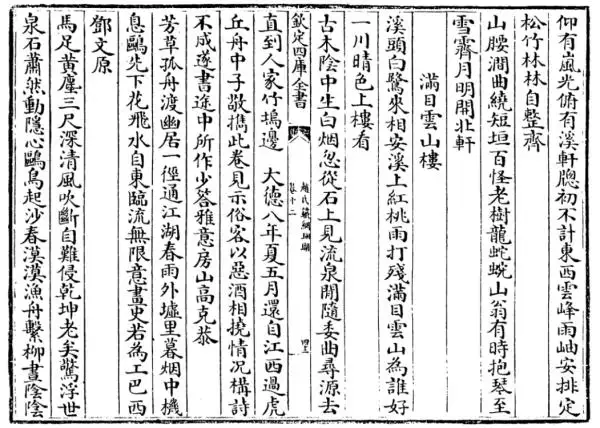 仰有嵐光俯有溪軒牕初不計東西雲峰雨岫安排定
松竹林林自整齊
山腰澗曲繞短垣百怪老樹龍蛇蜿山翁有時抱琴至
雪霽月明開北軒
滿目雲山樓
溪頭白鷺來相安溪上紅桃雨打殘滿目雲山為誰好
一川晴色上樓看
古木陰中生白烟忽從石上見流泉閒隨委曲尋源去
欽定四庫全書
趙氏鐵網珊瑚
卷十二
直到人家竹塢邊　大德八年夏五月還自江西過虎
丘舟中子敬攜此卷見示俗客以惡酒相撓情況構詩
不成遂書途中所作少答雅意房山高克恭
芳草孤舟渡幽居一徑通江湖春雨外墟里暮烟中機
息鷗先下花飛水自東臨流無限意畫史若為工巴西
鄧文原
馬足黃塵三尺深清風吹斷自難侵乾坤老矣驚浮世
泉石蕭然動隱心鷗鳥起沙春漠漠漁舟繫柳晝陰陰